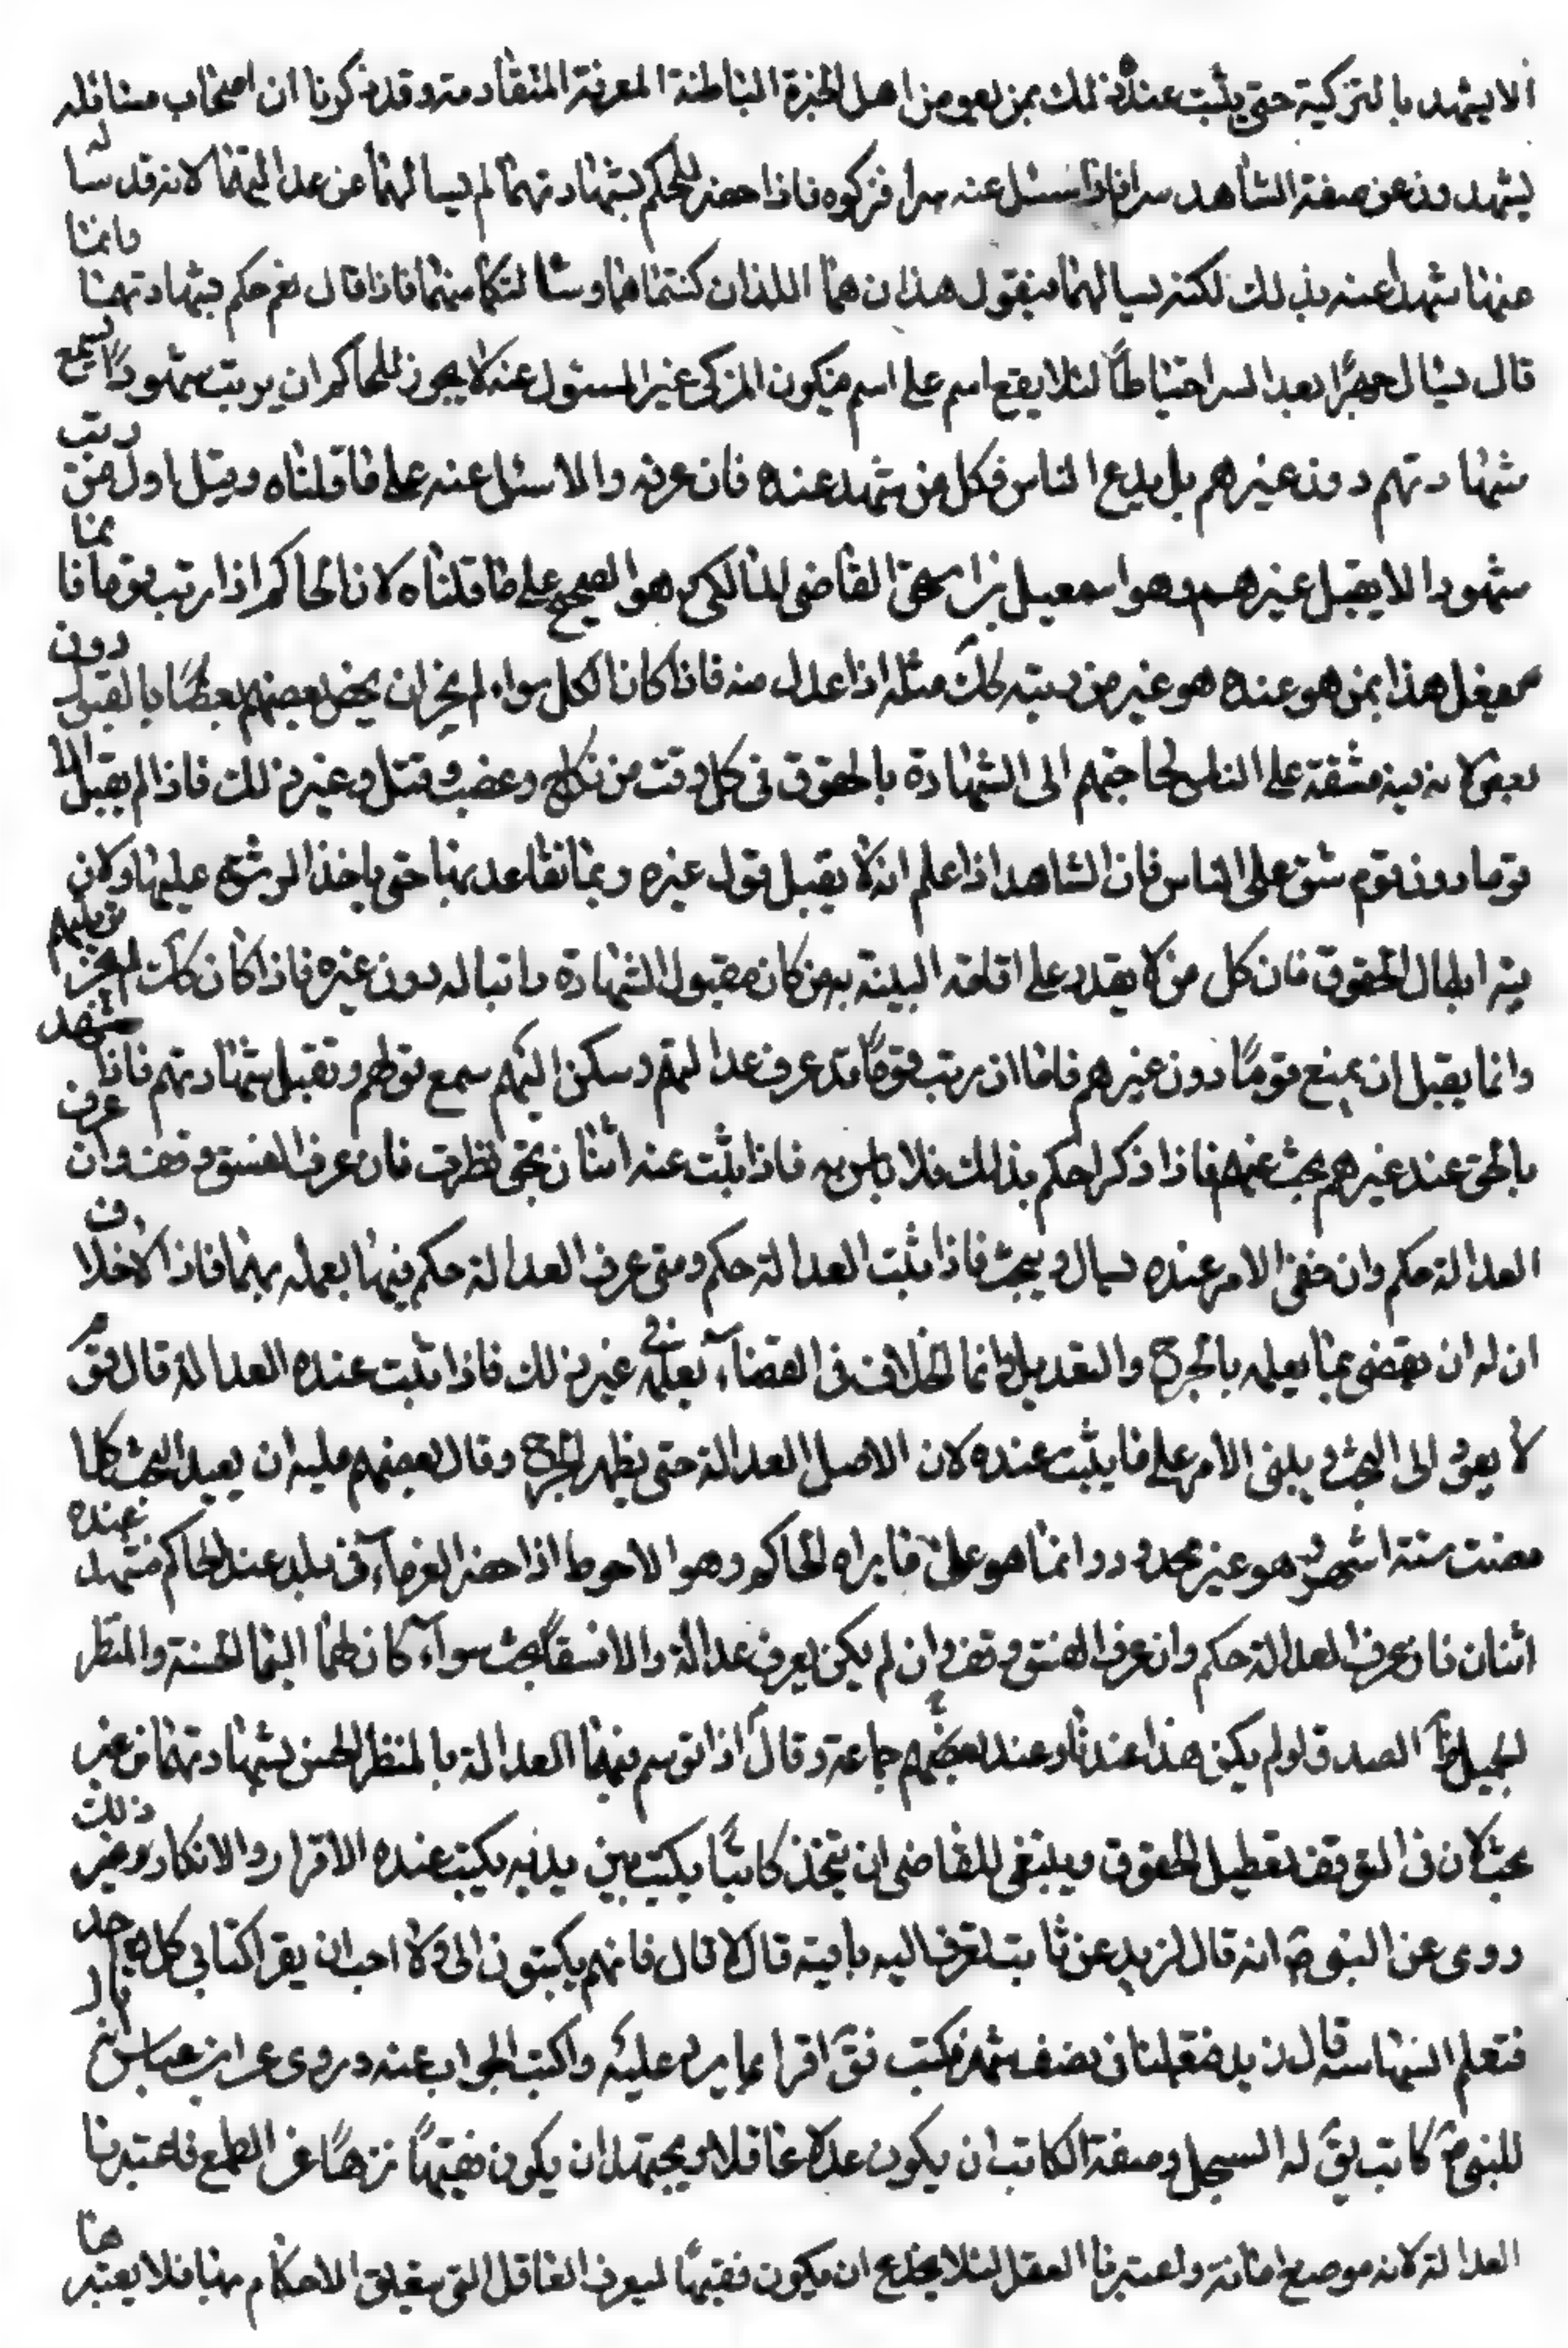 ألا يشهد بالتزكية حتى يثبت عنده ذلك بمن هو من اهل الخبرة الباطنة المعرفة المتقادمة وقد ذكرنا ان اصحاب مسائله
يشهدون عن صفة الشاهد سرا فاذا سئل عنه سرا فزكوه فاذا حضر للحكم بشهادتهما لم يسالهما عن عدالتهما لانه قد سا له
عنهما شهدا عنه بذلك لكنه يسالهما فيقول هذان هما اللذان كنتما هما وسالتكما عنهما فاذا قال نعم حكم بشهادتهما وانما
قال يسال جهرًا بعد السر احتياطاً لئلا يقع اسم على اسم فيكون المزكى غير المسئول عنه لا يجوز للحاكم ان يرتب شهودًا يسمع
شهادتهم دون غيرهم بل يدع الناس فكل من شهد عنده فان عرفه والا سئل عنه على ما قلناه وقيل اول من رتب
شهودا لا يقبل غيرهم هو اسمعيل بن اسحق القاضي المالكي هو الصحيح على ما قلناه لان الحاكم اذا رتب قوما فانما
يفعل هذا بمن هو عنده هو غير من رتبه كك مثله اذا عدل منه فاذا كان الكل سواء لم يجز ان يخص بعضهم بعضًا بالقبول دون
بعض لانه فيه مشقة على الناس لحاجتهم الى الشهادة بالحقوق في كل وقت من نكاح وغصب وقتل وغير ذلك فاذا لم يقبل الا
قوما دون قوم شق على الناس فان الشاهد اذا علم انه لا يقبل قول غيره ربما تقاعد بها حتى ياخذ الرشوة عليها ولان
فيه ابطال الحقوق فان كل من لا يقدر على اقامة البينة به من كان مقبول الشهادة راتبا له دون غيره فاذا كان كك لم يجز ترتيبهم
وانما يقبل ان يمنع قومًا دون غيرهم فاما ان رتب قومًا قد عرف عدالتهم وسكن اليهم سمع قولهم وتقبل شهادتهم فاذا شهد
بالحق عند غيرهم بحث عنهم فاذا ذكرا حكم بذلك فلا باس به فاذا يثبت عنه اثنان بحق نظرت فان عرف الفسق وقف وان عرف
العدالة حكم وان خفى الامر عنده سال وبحث فاذا ثبت العدالة حكم ومتى عرف العدالة حكم فيها بعمله بهما فاذا لا خلاف
ان له ان يقضى بما يعلمه بالجرح والتعديل وانما الخلاف في القضاء بعلمه في غير ذلك فاذا ثبت عنده العدالة قال قوم
لا يعود الى البحث ويبنى الأمر على ما يثبت عنده لان الاصل العدالة حتى يظهر الجرح وقال بعضهم عليه ان يعيد البحث كلما
مضت ستة اشهر وهو غير محدود وانما هو على ما يراه الحاكم وهو الاحوط اذا حضر الغرماء في بلد عند الحاكم فشهد عنده
اثنان فان عرف العدالة حكم وان عرف الفسق وقف وان لم يكن يعرف عدالة والا فسقًا بحث سواء كان لهما السيما الحسنة والمنظر
الجميل وظاهر الصدق لو لم يكن هذا عندنا وعند بعضهم جماعة وقال اذا توسم فيهما العدالة بالمنظر الحسن بشهادتهما من غير
بحث لان في التوقف تعطيل الحقوق وينبغي للقاضى ان يتخذ كاتبًا يكتب بين يديه يكتب عنده الاقرار والانكار وغير ذلك
روى عن النبي ص انه قال لزيد عن ثابت تعرف اليه باينة قال لا قال فانهم يكتبون الى ولا احب ان يقرا كتابى كل احد
فتعلم السريانية قال زيد فتعلمتها فى نصف شهر فكتب نق اقرا ما يرد عليه واكتب الجواب عنه وروى عن ابن عباس
للنبي ص كاتب يق له السجل وصفة الكاتب ان يكون عدلا عاقلا ويجتهد ان يكون فقيهًا نزهًا عن الطمع فاعتبرنا
العدالة لانه موضع امانة واعتبرنا العقل لئلا يخدع ان يكون فقيهًا ليعرف الفاقل التى يتعلق الاحكام بها فلا يعتبر هنا